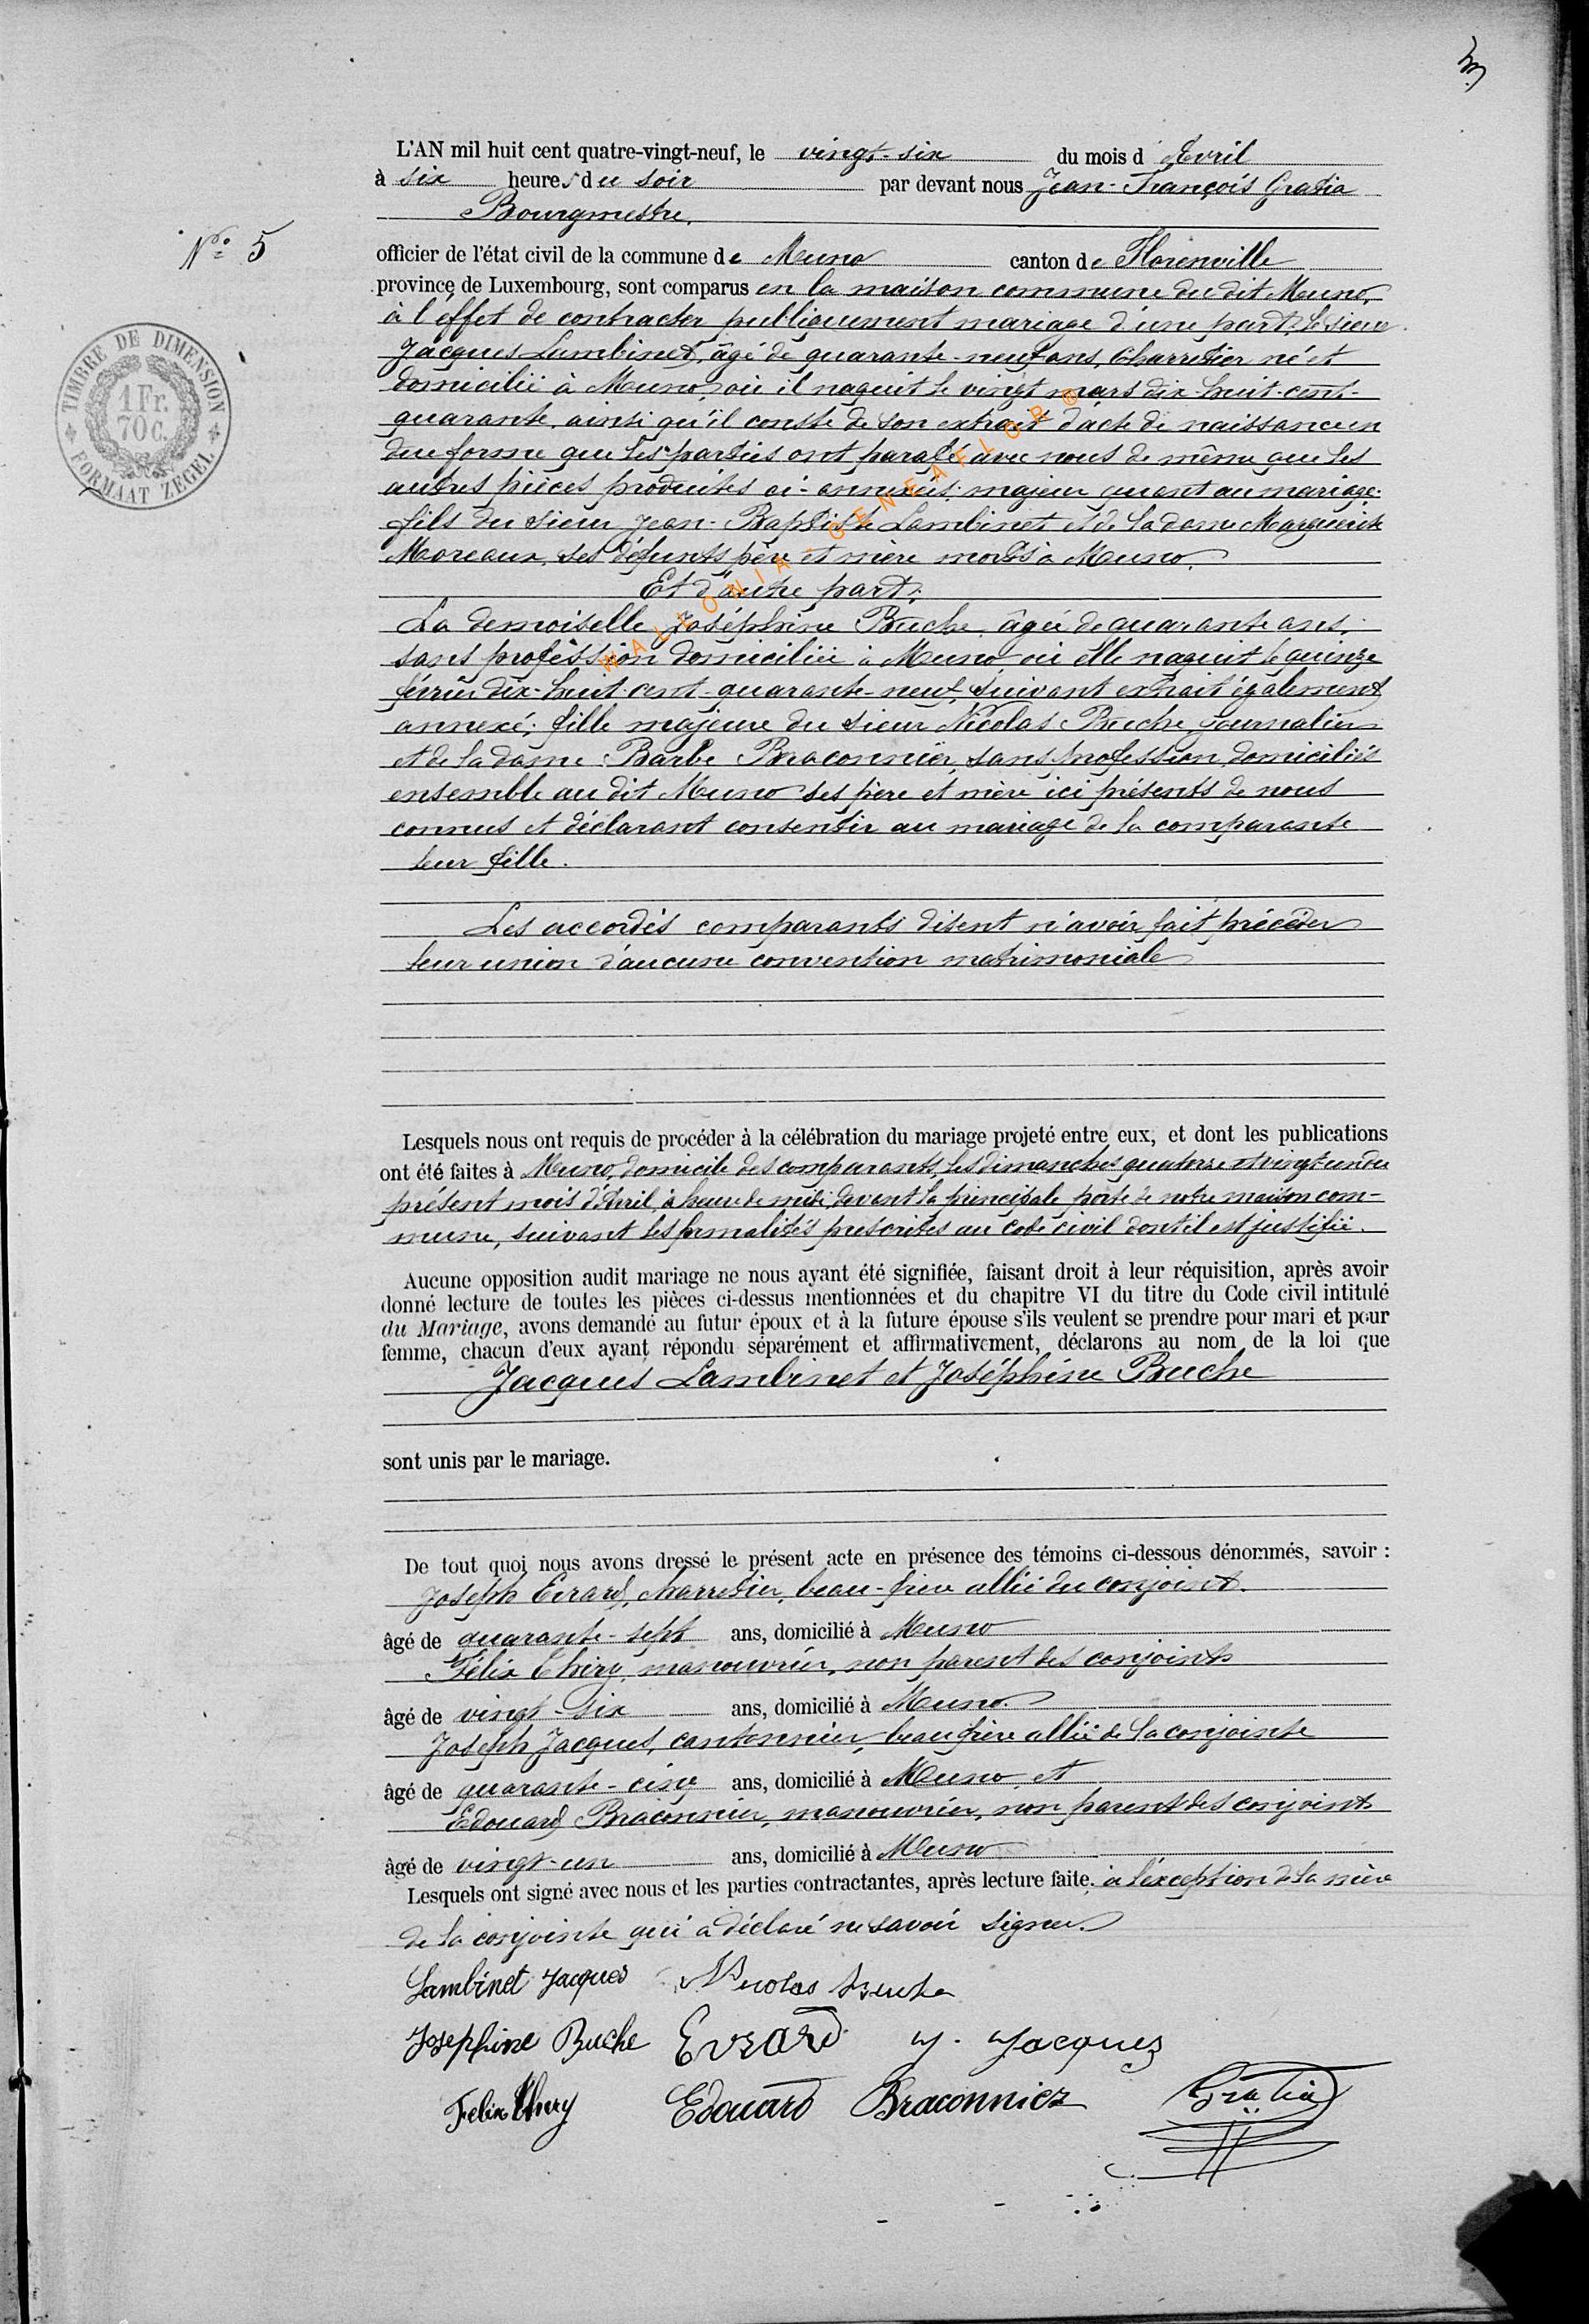 3
L'AN mil huit cent quatre-vingt-neuf, le vingt-six du mois d'Avril
à six heures du soir par devant nous Jean-François Gratia
Bourgmestre,
N° 5
officier de l'état civil de la commune de Muno canton de Florenville
province de Luxembourg, sont comparus en la maison commune du dit Muno,
à l'éffet de contracter publiquement mariage d'une part, le sieur
Jacques Lambinet, âgé de quarante-neuf ans, Charretier né et
domicilié à Muno, où il naquit le vingt mars dix-huit-cent-
quarante, ainsi qu'il conste de son extrait d'acte de naissance en
due forme que les parties ont parafé avec nous de même que les
autres pièces produites ci-annexées; majeur quant au mariage;
fils du sieur Jean-Baptiste Lambinet et de la dame Marguerite
Moreaux, ses défunts père et mère morts à Muno.
Et d'autre part;
La demoiselle Joséphine Buche, âgée de quarante ans,
sans profession domiciliée à Muno, où elle naquit le quinze
février dix-huit-cent-quarante-neuf, suivant extrait également
annexé; fille majeure du sieur Nicolas Buche, journalier
et de la dame Barbe Braconnier, sans profession, domiciliés
ensemble au dit Muno ses père et mère ici présents de nous
connus et déclarant consentir au mariage de la comparante
leur fille.
Les accordés comparants disent n'avoir fait précéder
leur union d'aucune convention matrimoniale
TIMBRE DE DIMENSION
1 Fr.
70 c.
FORMAAT ZEGEL
WALLONIA - GENEAFLOR ®
Lesquels nous ont requis de procéder à la célébration du mariage projeté entre eux, et dont les publications
ont été faites à Muno, domicile des comparants, les dimanches quatorze et vingt-un du
présent mois d'Avril, à heure de midi, devant la principale porte de notre maison com-
mune, suivant les formalités prescrites au code civil dont il est justifié.
Aucune opposition audit mariage ne nous ayant été signifiée, faisant droit à leur réquisition, après avoir
donné lecture de toutes les pièces ci-dessus mentionnées et du chapitre VI du titre du Code civil intitulé
du Mariage, avons demandé au futur époux et à la future épouse s'ils veulent se prendre pour mari et pour
femme, chacun d'eux ayant répondu séparément et affirmativement, déclarons au nom de la loi que
Jacques Lambinet et Joséphine Buche
sont unis par le mariage.
De tout quoi nous avons dressé le présent acte en présence des témoins ci-dessous dénommés, savoir :
Joseph Evrard, charretier, beau-frère allié du conjoint.
âgé de quarante-sept ans, domicilié à Muno
Félix Thiry, manouvrier, non parent des conjoints
âgé de vingt-six ans, domicilié à Muno.
Joseph Jacques, cantonnier, beau frère allié de la conjointe
âgé de quarante-cinq ans, domicilié à Muno et
Edouard Braconnier, manouvrier, non parent des conjoints
âgé de vingt-un ans, domicilié à Muno
Lesquels ont signé avec nous et les parties contractantes, après lecture faite. à l'exception de la mère
de la conjointe qui a déclaré ne savoir signer.
Lambinet Jacques Nicolas Buche
Josephine Buche Evrard J. Jacques
Felix Thiry Edouard Braconnier Gratia